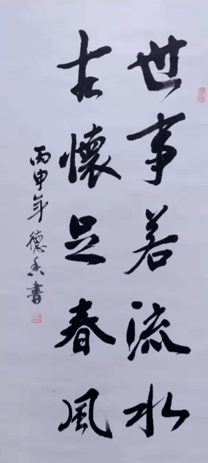 世事若流水
古懷足春風
丙申年 德玉書